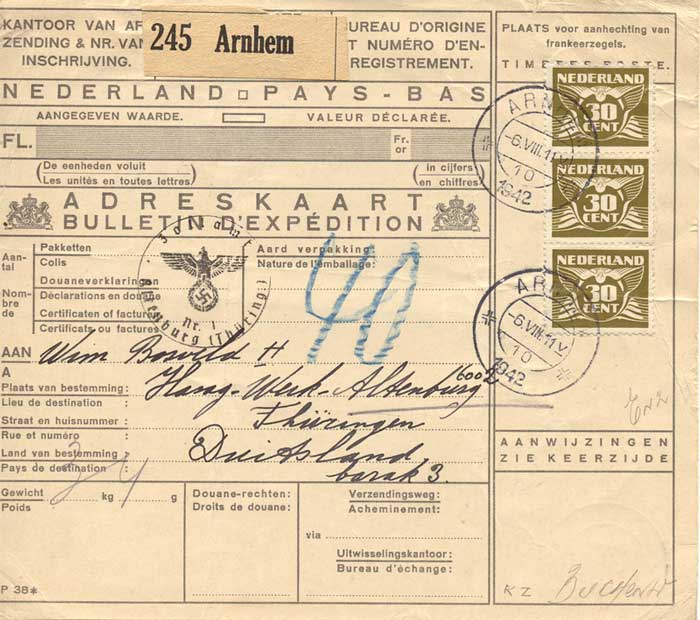 KANTOOR VAN AF
ZENDING & NR. VAN
INSCHRIJVING.
245 Arnhem
BUREAU D'ORIGINE
T NUMÉRO D'EN-
REGISTREMENT.
PLAATS voor aanhechting van
frankeerzegels.
TIMBRES-POSTE.
NEDERLAND PAYS-BAS
AANGEGEVEN WAARDE.
VALEUR DÉCLARÉE.
FL.
Fr.
or
(De eenheden voluit
Les unités en toutes lettres)
(in cijfers
en chiffres)
ADRESKAART
BULLETIN D'EXPÉDITION
NEDERLAND
30
CENT
NEDERLAND
30
CENT
NEDERLAND
30
CENT
ARNHEM
-6.VIII.11V
10
1942
ARNHEM
-6.VIII.11V
10
1942
Aan-
tal
Pakketten
Colis
Aard verpakking
Nature de l'emballage:
Nom-
bre
de
Douaneverklaringen
Déclarations en douane
Certificaten of facturen
Certificats ou factures
Zollamt
Altenburg (Thüring.)
Nr. 1
40
AAN
Wim
A
Plaats van bestemming:
Lieu de destination:
Hasag-Werk-Altenburg
1600 2
Straat en huisnummer:
Rue et numéro
Thüringen
Land van bestemming:
Pays de destination:
Duitsland
barak 3.
Gewicht
Poids
3 kg 4 g
Douane-rechten:
Droits de douane:
Verzendingsweg:
Acheminement:
via
Uitwisselingskantoor:
Bureau d'échange:
AANWIJZINGEN
ZIE KEERZIJDE
P 38*
KZ